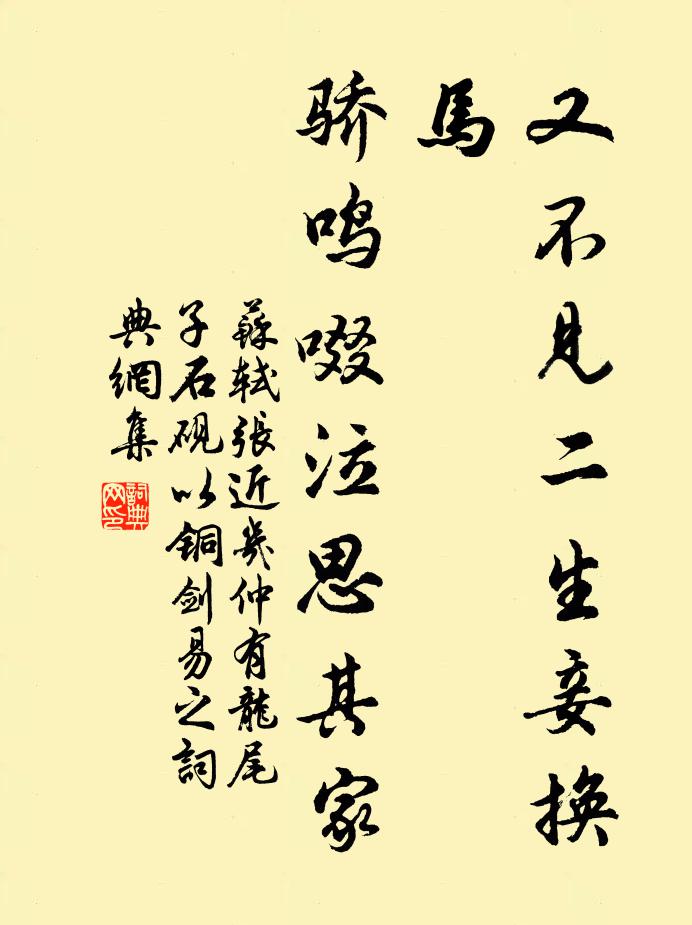 又不见二生妾换
馬
骄鸣啜泣思其家
蘇軾張近幾仲有龍尾
子石硯以銅劍易之詞
典網集
詞典
网印